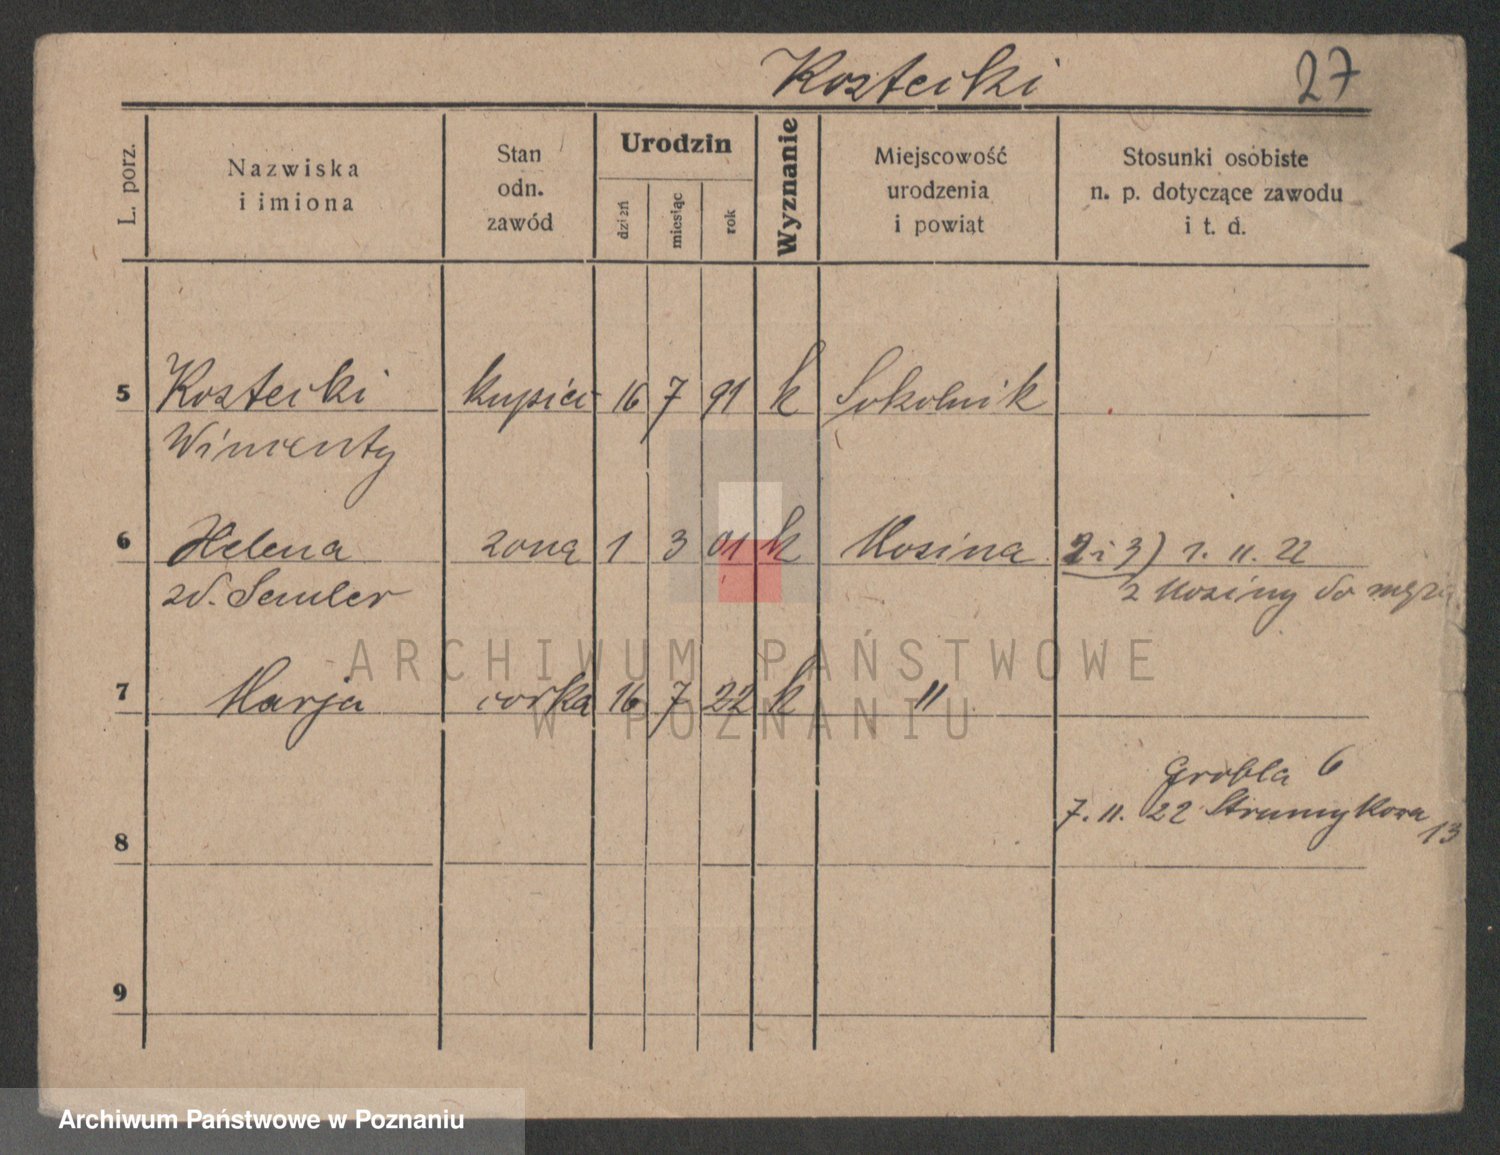 Kostecki 27
L. porz.
Nazwiska
i imiona
Stan
odn.
zawód
Urodzin
dzień
miesiąc
rok
Wyznanie
Miejscowość
urodzenia
i powiat
Stosunki osobiste
n. p. dotyczące zawodu
i t. d.
5 Kostecki kupiec 16 7 91 k Sokolnik
Wincenty
6 Helena żona 1 3 01 k Mosina 2 i 3) 1. 11. 22
zd. Semler z Mosiny do męża
ARCHIWUM PAŃSTWOWE
W POZNANIU
7 Marja córka 16 7 22 k "
Grobla 6
7. 11. 22 Strumykowa 13
8
9
Archiwum Państwowe w Poznaniu